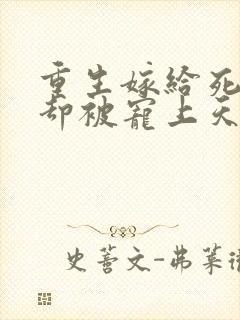 重生嫁给死
却被宠上天
史蒈文-弗莱